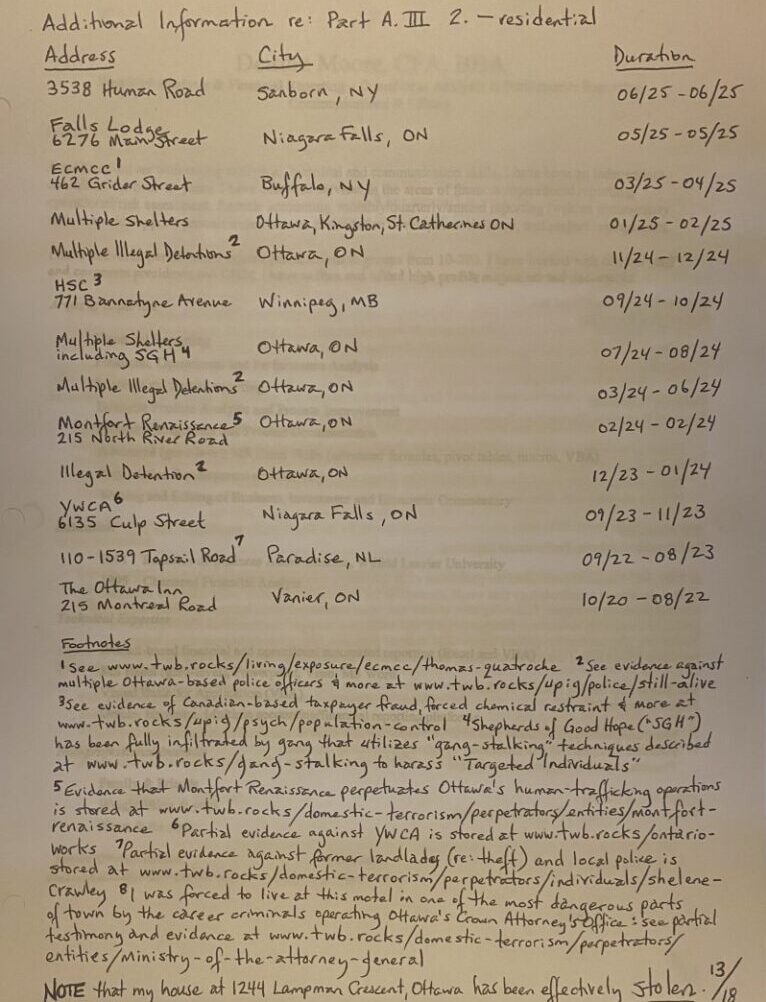 Additional Information re: Part A. III 2. - residential
Address City Duration
3538 Human Road Sanborn, NY 06/25 - 06/25
Falls Lodge
6276 Main Street Niagara Falls, ON 05/25 - 05/25
ECMCC1
462 Grider Street Buffalo, NY 03/25 - 04/25
Multiple Shelters Ottawa, Kingston, St. Catherines ON 01/25 - 02/25
Multiple Illegal Detentions2 Ottawa, ON 11/24 - 12/24
HSC3
771 Bannatyne Avenue Winnipeg, MB 09/24 - 10/24
Multiple Shelters
including SGH4 Ottawa, ON 07/24 - 08/24
Multiple Illegal Detentions2 Ottawa, ON 03/24 - 06/24
Montfort Renaissance5 Ottawa, ON 02/24 - 02/24
215 North River Road
Illegal Detention2 Ottawa, ON 12/23 - 01/24
YWCA6
6135 Culp Street Niagara Falls, ON 09/23 - 11/23
110-1539 Topsail Road7 Paradise, NL 09/22 - 08/23
The Ottawa Inn
215 Montreal Road Vanier, ON 10/20 - 08/22
Footnotes
1See www.twb.rocks/living/exposure/ecmcc/thomas-quatroche 2See evidence against
multiple Ottawa-based police officers & more at www.twb.rocks/upig/police/still-alive
3See evidence of Canadian-based taxpayer fraud, forced chemical restraint & more at
www.twb.rocks/upig/psych/population-control 4Shepherds of Good Hope ("SGH")
has been fully infiltrated by gang that utilizes "gang-stalking" techniques described
at www.twb.rocks/gang-stalking to harass "Targeted Individuals"
5Evidence that Montfort Renaissance perpetuates Ottawa's human-trafficking operations
is stored at www.twb.rocks/domestic-terrorism/perpetrators/entities/montfort-
renaissance 6Partial evidence against YWCA is stored at www.twb.rocks/ontario-
works 7Partial evidence against former landlady (re: theft) and local police is
stored at www.twb.rocks/domestic-terrorism/perpetrators/individuals/shelene-
crawley 8I was forced to live at this motel in one of the most dangerous parts
of town by the career criminals operating Ottawa's Crown Attorney's Office: see partial
testimony and evidence at www.twb.rocks/domestic-terrorism/perpetrators/
entities/ministry-of-the-attorney-general
NOTE that my house at 1244 Lampman Crescent, Ottawa has been effectively stolen. 13/18